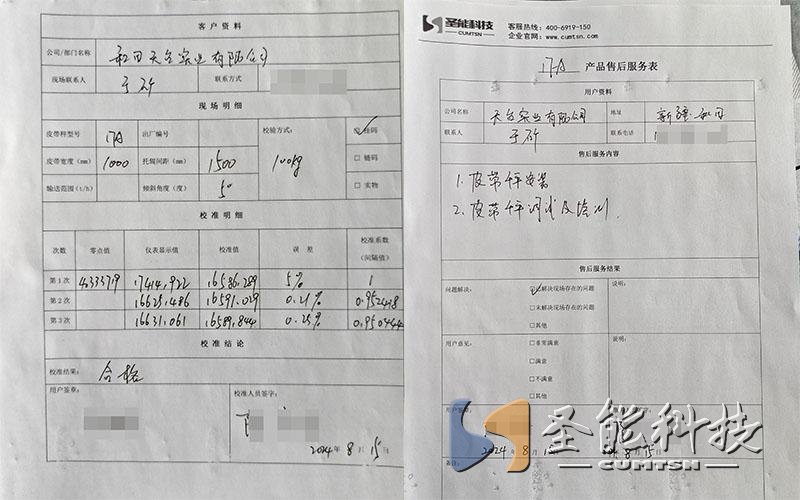 客户资料
公司/部门名称 和田天台实业有限公司
现场联系人 于 联系方式
现场明细
皮带秤型号 17A 出厂编号 校验方式： ☑ 挂码
皮带宽度（mm） 1000 托辊间距（mm） 1500 100kg □ 链码
输送范围（t/h） 倾斜角度（度） 5° □ 实物
校准明细
次数 零点值 仪表显示值 校准值 误差 校准系数（间隔值）
第1次 17414.922 16586.289 5% 1
第2次 16625.486 16591.029 0.21% 0.952418
第3次 16631.061 16589.844 0.25% 0.950444
校准结论
校准结果： 合格
用户签章： 校准人员签字：
2024年8月15日
圣能科技
CUMTSN
客服热线：400-6919-150
企业官网：www.cumtsn.com
17A 产品售后服务表
用户资料
公司名称 天台实业有限公司 地址 新疆和田
联系人 于 联系电话
售后服务内容
1. 皮带秤安装
2. 皮带秤调试及检测.
售后服务结果
问题解决： ☑解决现场存在的问题 说明：
□未解决现场存在的问题
□其他
用户意见： □非常满意 说明：
□满意
□不满意
□其他
2024 8 15日
备注：
圣能科技
CUMTSN